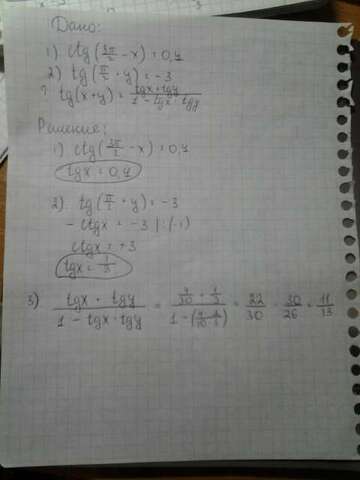 Дано:
1) ctg(3π/2 - x) = 0,4
2) tg(π/2 + y) = -3
? tg(x+y) = (tgx + tgy)/(1 - tgx · tgy)
Решение:
1) ctg(3π/2 - x) = 0,4
tgx = 0,4
2) tg(π/2 + y) = -3
- ctgx = -3 |:(-1)
ctgx = +3
tgx = 1/3
3) (tgx + tgy)/(1 - tgx · tgy) = (4/10 + 1/3)/(1 - (4/10 · 1/3)) = 22/30 · 30/26 = 11/13